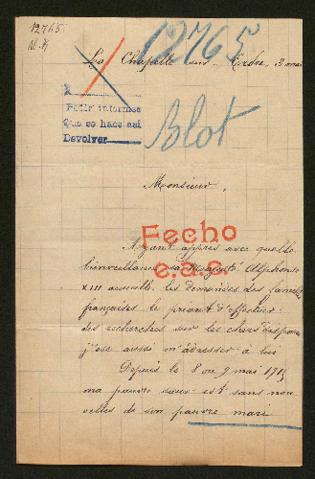 12765
12765
La Chapelle sur Erdre, 3 mai
A
Pedir informes
Que se hace así
Devolver
Blot
Monsieur,
Fecho
e.a.c.
Ayant appris avec quelle
bienveillance sa Majesté Alphonse
XIII accueille les demandes des familles
françaises le priant d'effectuer
des recherches sur les chers disparus
j'ose aussi m'adresser à lui
Depuis le 8 ou 9 mai 1915
ma pauvre sœur est sans nou
velles de son pauvre mari